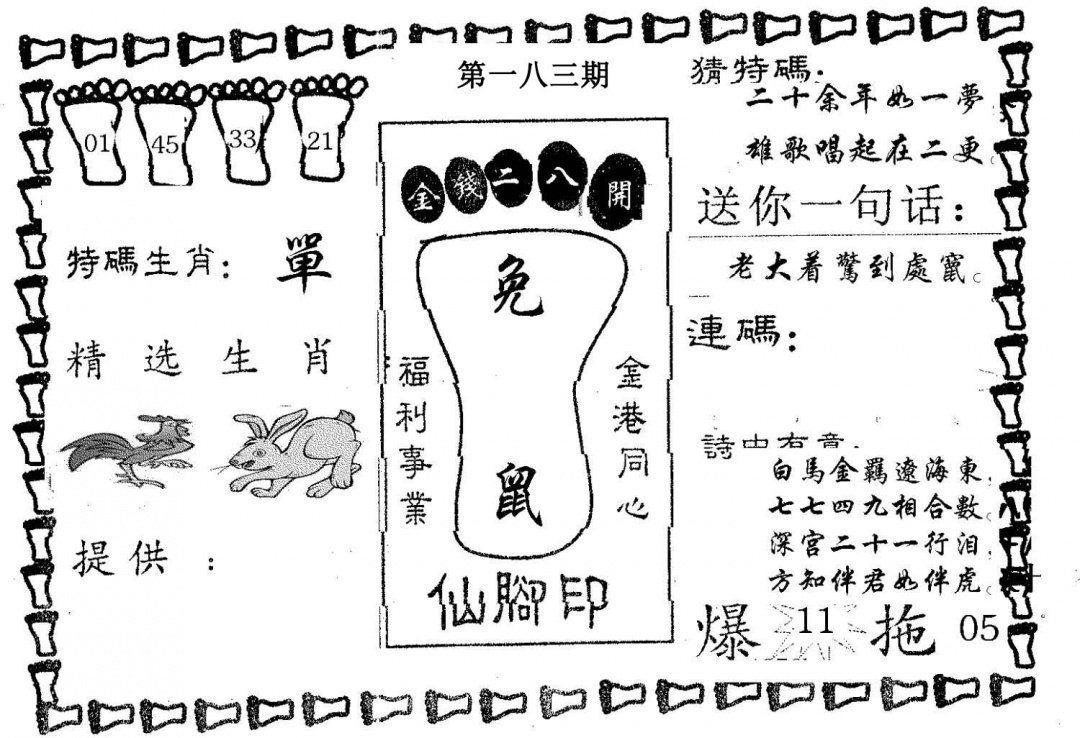 第一八三期
01 45 33 21
特碼生肖：單
精选生肖
提供：
金錢二八開
兔
鼠
福利事業
金港同心
仙腳印
猜特碼：
二十余年如一夢
雄歌唱起在二更。
送你一句话：
老大着驚到處竄。
連碼：
詩中有意：
白馬金羈遼海東，
七七四九相合數。
深宮二十一行泪，
方知伴君如伴虎。
爆 11 拖 05